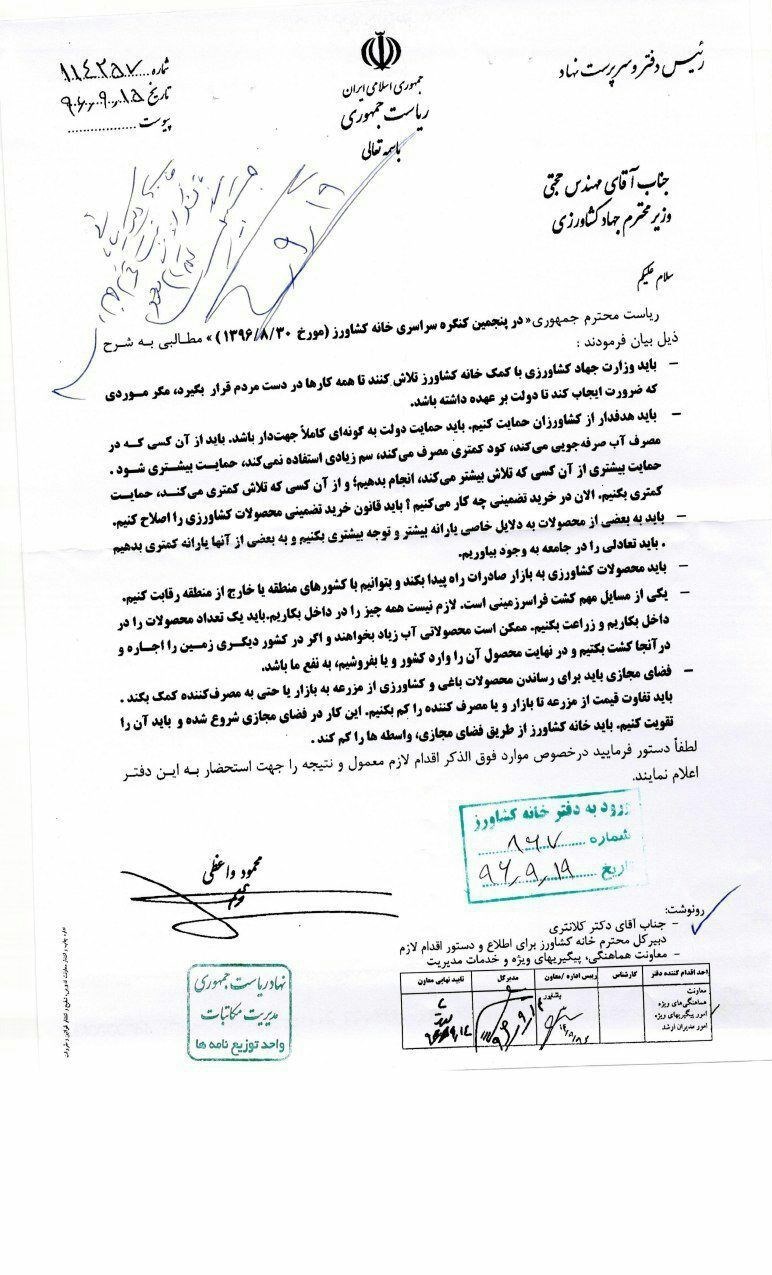 رئیس دفتر و سرپرست نهاد
جمهوری اسلامی ایران
ریاست جمهوری
باسمه تعالی
شماره ۱۱۴۲۵۷
تاریخ ۹۶،۹،۱۵
پیوست
جناب آقای مهندس حجتی
وزیر محترم جهاد کشاورزی
سلام علیکم
ریاست محترم جمهوری« در پنجمین کنگره سراسری خانه کشاورز (مورخ ۱۳۹۶/۸/۳۰ ) » مطالبی به شرح
ذیل بیان فرمودند :
– باید وزارت جهاد کشاورزی با کمک خانه کشاورز تلاش کنند تا همه کارها در دست مردم قرار بگیرد، مگر موردی
که ضرورت ایجاب کند تا دولت بر عهده داشته باشد.
– باید هدفدار از کشاورزان حمایت کنیم. باید حمایت دولت به گونه‌ای کاملاً جهت‌دار باشد. باید از آن کسی که در
مصرف آب صرفه‌جویی می‌کند، کود کمتری مصرف می‌کند، سم زیادی استفاده نمی‌کند، حمایت بیشتری شود .
حمایت بیشتری از آن کسی که تلاش بیشتر می‌کند، انجام بدهیم؛ و از آن کسی که تلاش کمتری می‌کند، حمایت
کمتری بکنیم. الان در خرید تضمینی چه کار می‌کنیم ؟ باید قانون خرید تضمینی محصولات کشاورزی را اصلاح کنیم.
– باید به بعضی از محصولات به دلایل خاصی یارانه بیشتر و توجه بیشتری بکنیم و به بعضی از آنها یارانه کمتری بدهیم
. باید تعادلی را در جامعه به وجود بیاوریم.
– باید محصولات کشاورزی به بازار صادرات راه پیدا بکند و بتوانیم با کشورهای منطقه یا خارج از منطقه رقابت کنیم.
– یکی از مسایل مهم کشت فراسرزمینی است. لازم نیست همه چیز را در داخل بکاریم.باید یک تعداد محصولات را در
داخل بکاریم و زراعت بکنیم. ممکن است محصولاتی آب زیاد بخواهند و اگر در کشور دیگری زمین را اجاره و
در آنجا کشت بکنیم و در نهایت محصول آن را وارد کشور و یا بفروشیم، به نفع ما باشد.
– فضای مجازی باید برای رساندن محصولات باغی و کشاورزی از مزرعه به بازار یا حتی به مصرف‌کننده کمک بکند .
باید تفاوت قیمت از مزرعه تا بازار و یا مصرف کننده را کم بکنیم. این کار در فضای مجازی شروع شده و باید آن را
تقویت کنیم. باید خانه کشاورز از طریق فضای مجازی، واسطه ها را کم کند .
لطفاً دستور فرمایید درخصوص موارد فوق الذکر اقدام لازم معمول و نتیجه را جهت استحضار به این دفتر
اعلام نمایند.
ورود به دفتر خانه کشاورز
شماره ۸۶۷
تاریخ ۹۶،۹،۱۹
محمود واعظی
رونوشت:
– جناب آقای دکتر کلانتری
دبیرکل محترم خانه کشاورز برای اطلاع و دستور اقدام لازم
– معاونت هماهنگی، پیگیریهای ویژه و خدمات مدیریت
نهاد ریاست جمهوری
مدیریت مکاتبات
واحد توزیع نامه ها
واحد اقدام کننده دفتر کارشناس رییس اداره /معاون مدیرکل تایید نهایی معاون
معاونت
هماهنگی‌های ویژه
امور پیگیریهای ویژه
امور مدیران ارشد